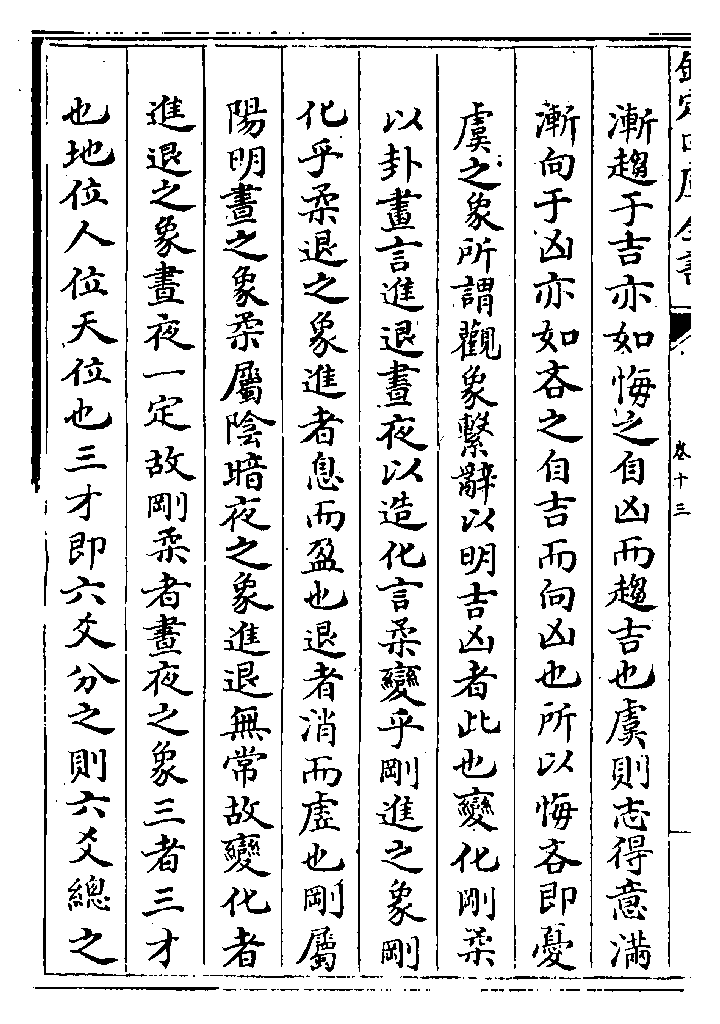 欽定四庫全書
卷十三
漸趨于吉亦如悔之自凶而趨吉也虞則志得意滿
漸向于凶亦如吝之自吉而向凶也所以悔吝即憂
虞之象所謂觀象繫辭以明吉凶者此也變化剛柔
以卦畫言進退晝夜以造化言柔變乎剛進之象剛
化乎柔退之象進者息而盈也退者消而虛也剛屬
陽明晝之象柔屬陰暗夜之象進退無常故變化者
進退之象晝夜一定故剛柔者晝夜之象三者三才
也地位人位天位也三才即六爻分之則六爻總之